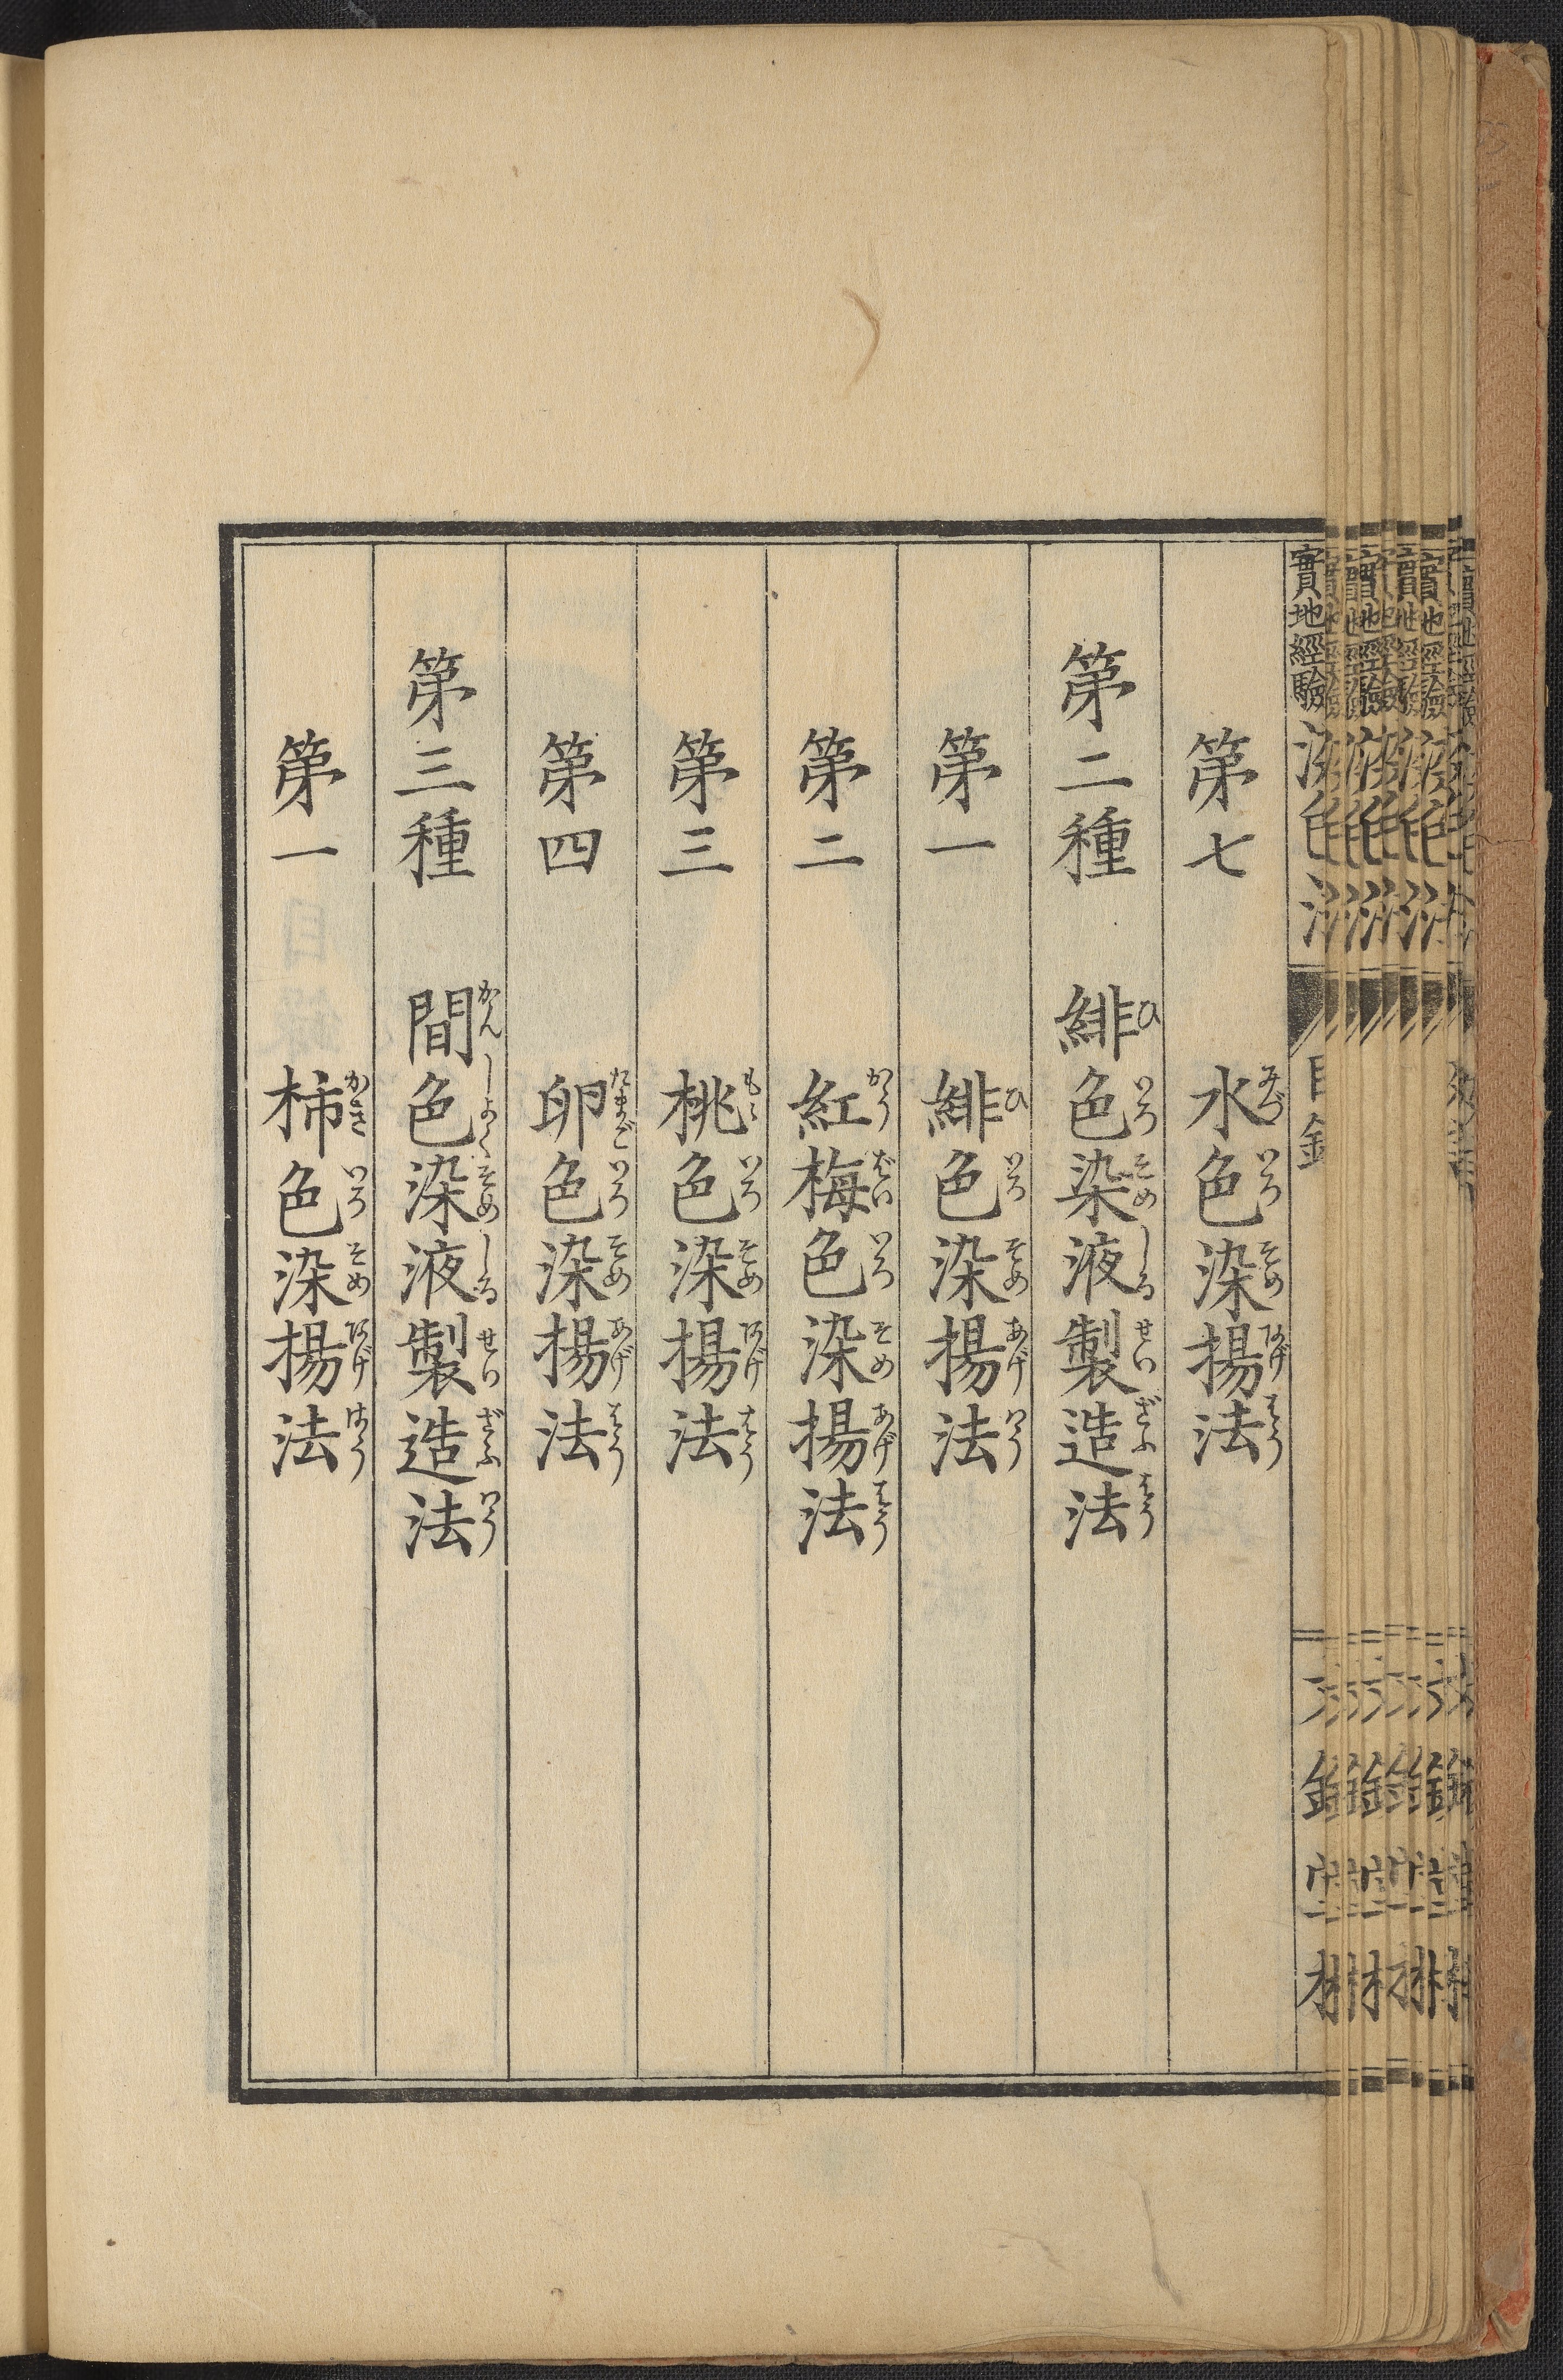 第七　水色染揚法
第二種　緋色染液製造法
第一　緋色染揚法
第二　紅梅色染揚法
第三　桃色染揚法
第四　卵色染揚法
第三種　間色染液製造法
第一　柿色染揚法
實地經驗